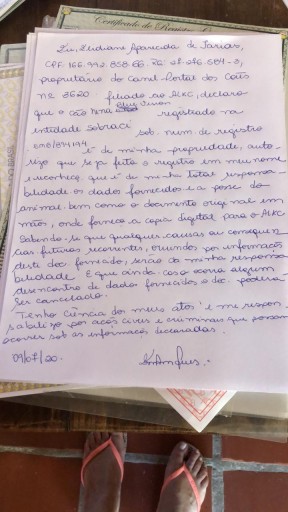 Certificado de Registro
Eu, Elidiane Aparecida de Farias,
CPF: 166.992.858-66 RG 27.276.584-3,
proprietária do Canil-Portal dos Cães
nº 3620 filiado ao ALKC, declaro
que o cão registrado na
entidade sobraci sob. num. de registro
é de minha propriedade, auto-
rizo que seja feito o registro em meu nome
e conheço que é de minha total responsa-
bilidade os dados fornecidos e a posse do
animal. bem como o documento original em
mãos, onde forneço a copia digital para o ALKC
Sabendo-se que quaisquer causas ou consequen
cias futuras recorrentes, oriundos por informações
deste doc fornecido, serão da minha responsa-
bilidade E que ainda caso ocorra algum
desencontro de dados fornecidos o doc. poderá
ser cancelado.
Tenho ciência dos meus atos e me respon-
sabilizo por ações civis e criminais que possam
ocorrer sob as informações declaradas.
09/07/20.